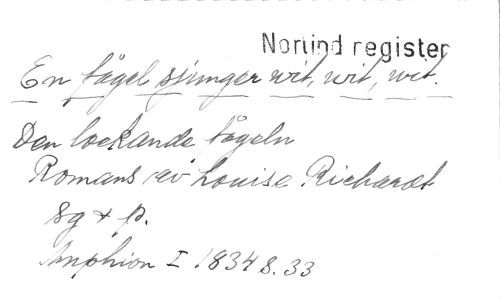 Norlind register
En fågel sjunger wit, wit, wit.
Den lockande fågeln
Romans av Louise Richardt
sg + p.
Amphion I 1834 s. 33